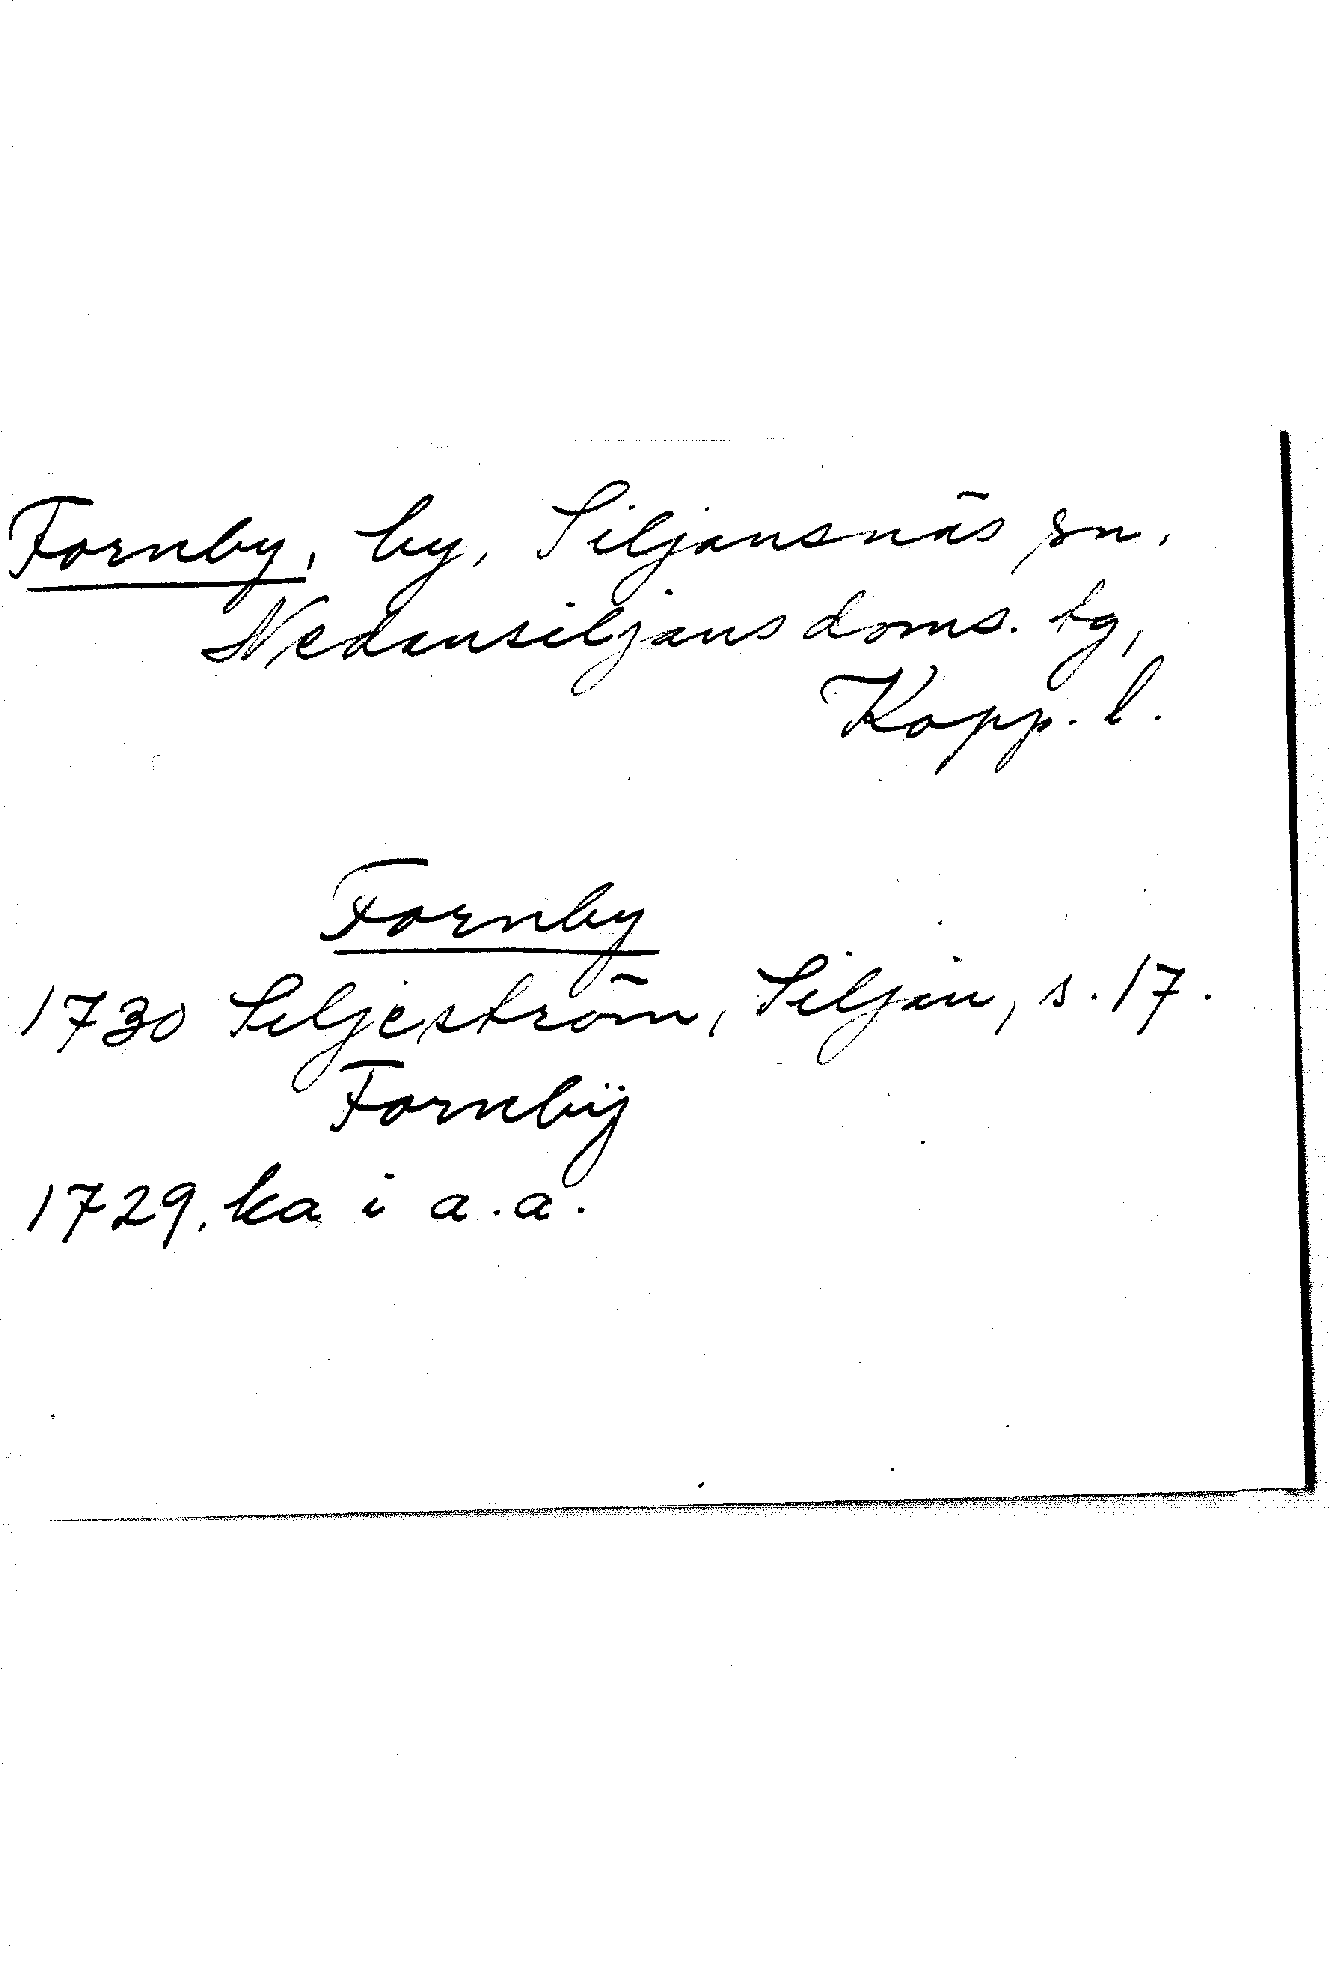 Fornby, by, Siljansnäs sn.
Nedansiljans doms. tg,
Kopp. l.
Fornby
1730 Siljeström, Siljan, s. 17.
Fornbÿ
1729. ka i a.a.